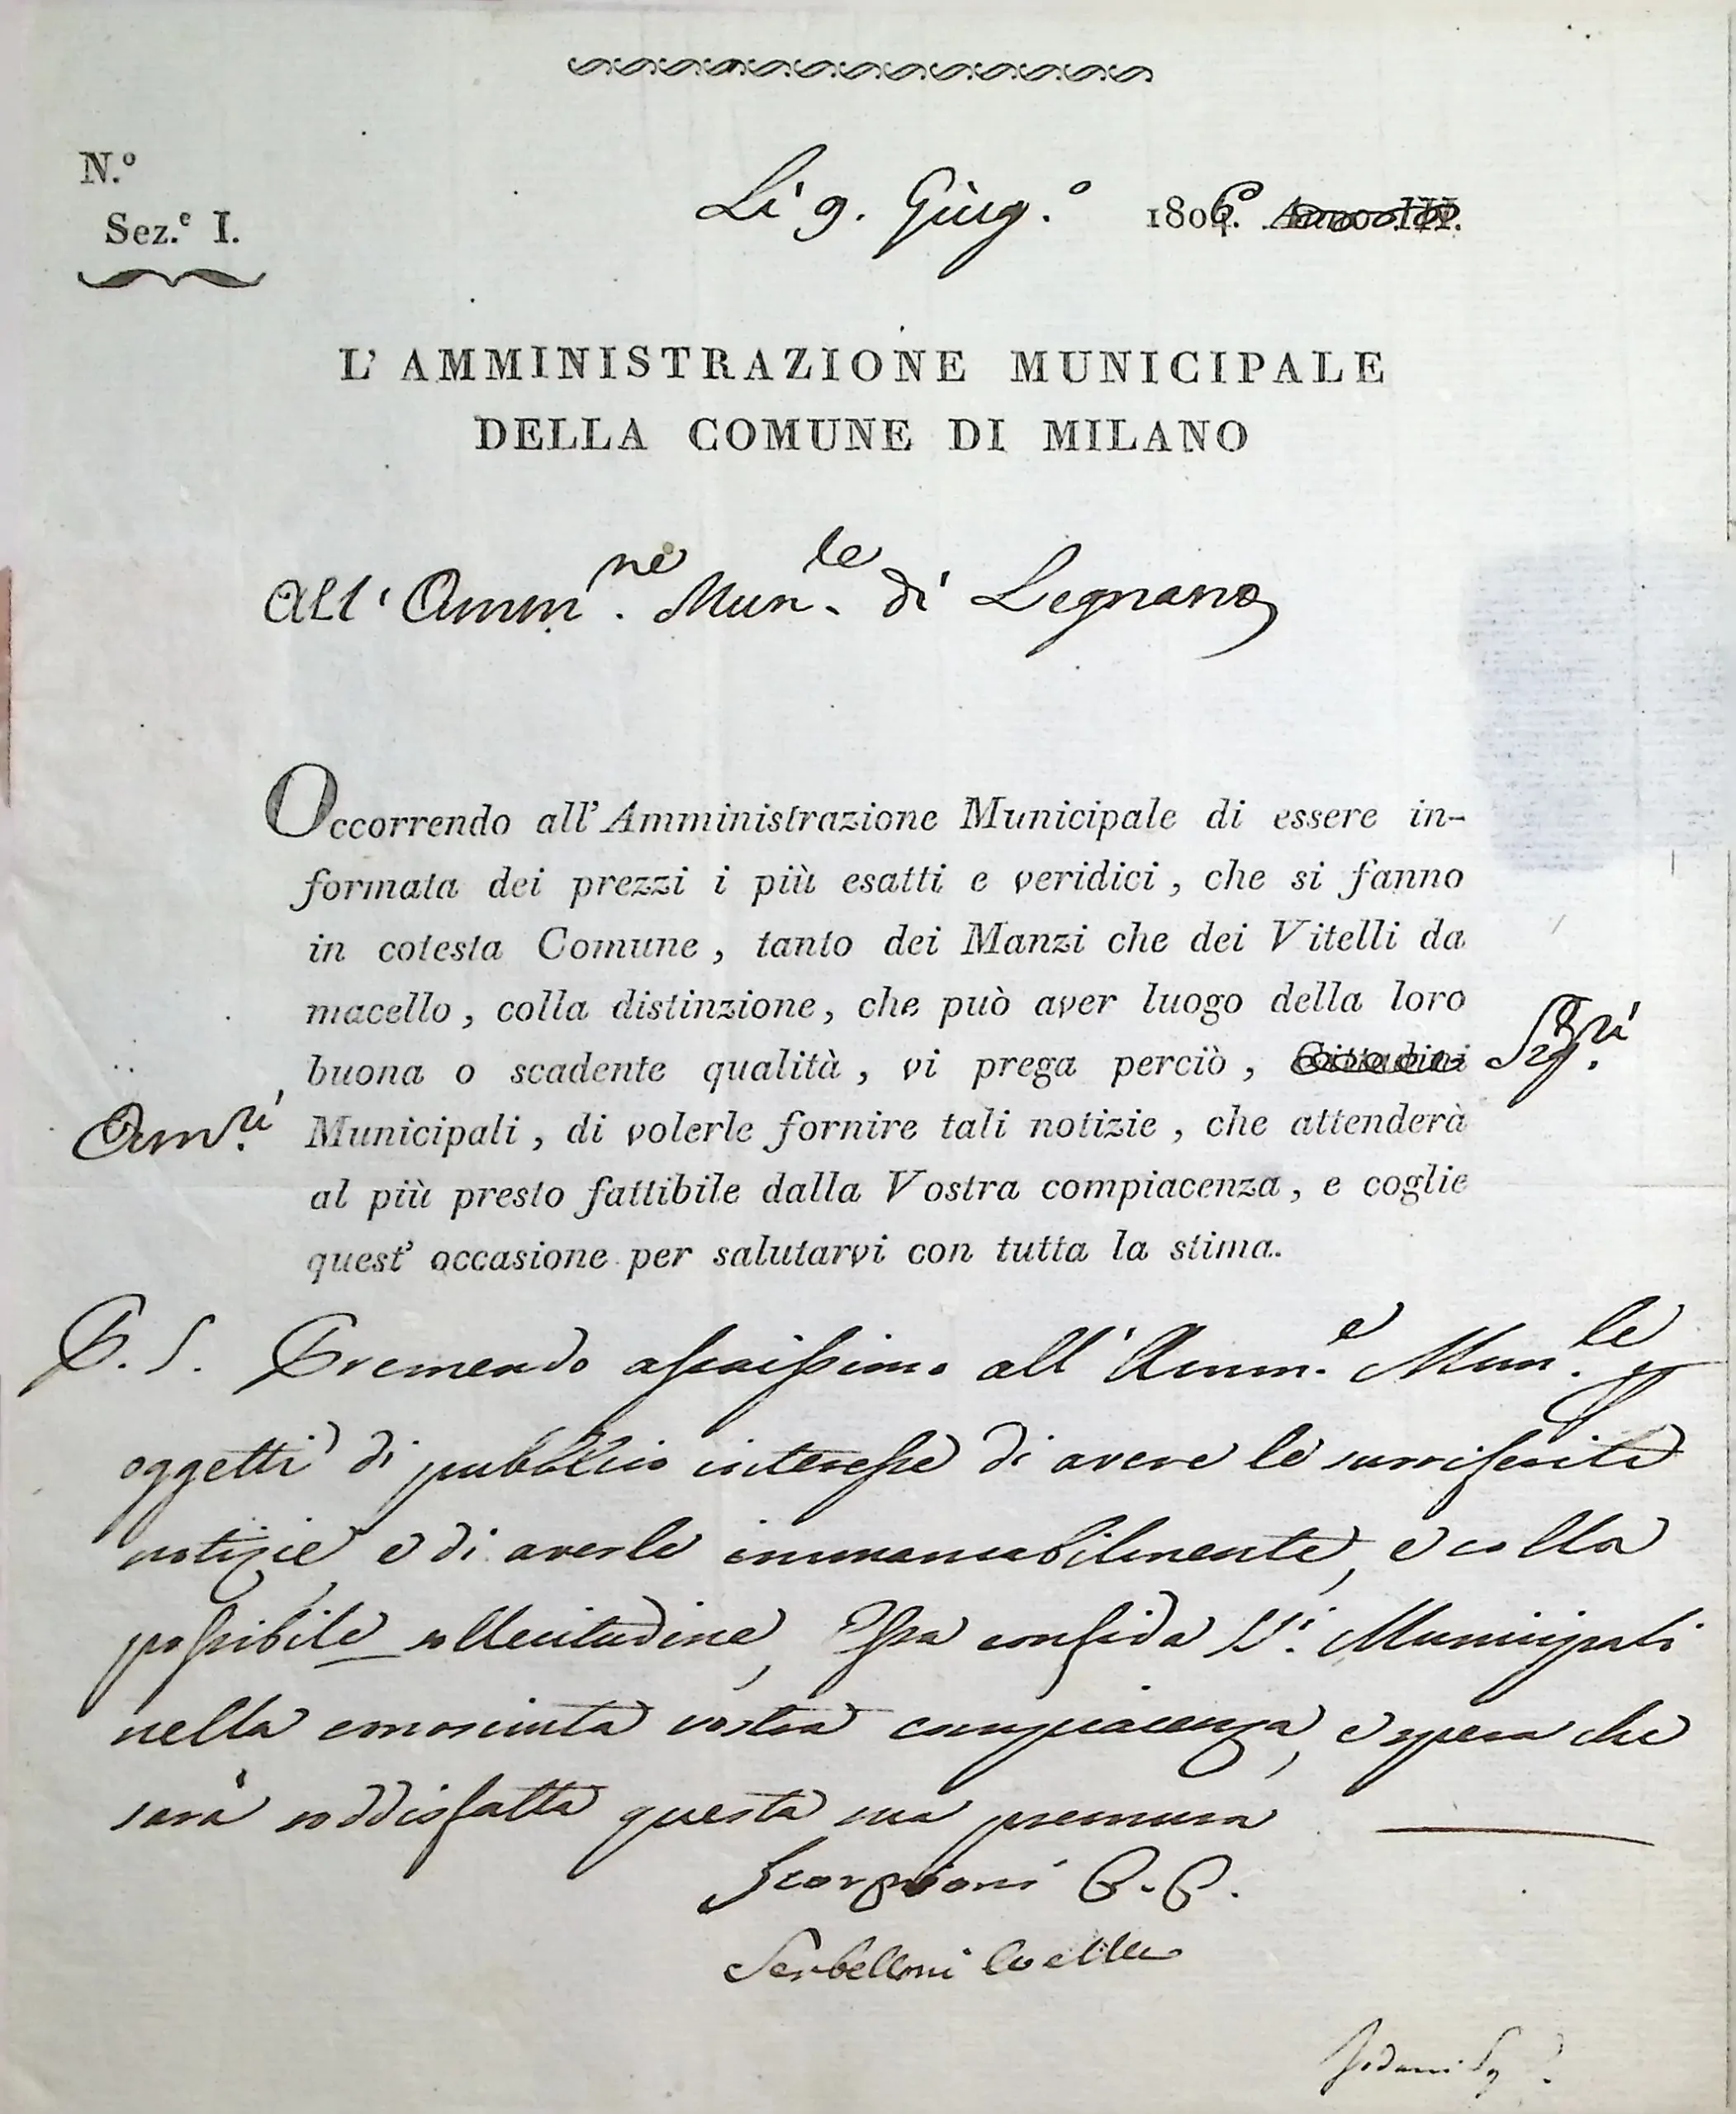 N.º
Sez.e I.
Li 9. Giug.º 1806. Anno III.
L' AMMINISTRAZIONE MUNICIPALE
DELLA COMUNE DI MILANO
All' Amm.ne Mun.le di Legnano
Occorrendo all' Amministrazione Municipale di essere in-
formata dei prezzi i più esatti e veridici, che si fanno
in cotesta Comune, tanto dei Manzi che dei Vitelli da
macello, colla distinzione, che può aver luogo della loro
buona o scadente qualità, vi prega perciò, Cittadini Sig.ri
Amm.ri Municipali, di volerle fornire tali notizie, che attenderà
al più presto fattibile dalla Vostra compiacenza, e coglie
quest' occasione per salutarvi con tutta la stima.
P. S. Premendo assaissimo all' Amm.e Mun.le
oggetti di pubblico interesse di avere le surriferite
notizie e di averle immancabilmente, e colla
possibile sollecitudine, Essa confida S.i Municipali
nella conosciuta vostra compiacenza, e spera che
sarà soddisfatta questa sua premura
Scorpioni P. P.
Serbelloni